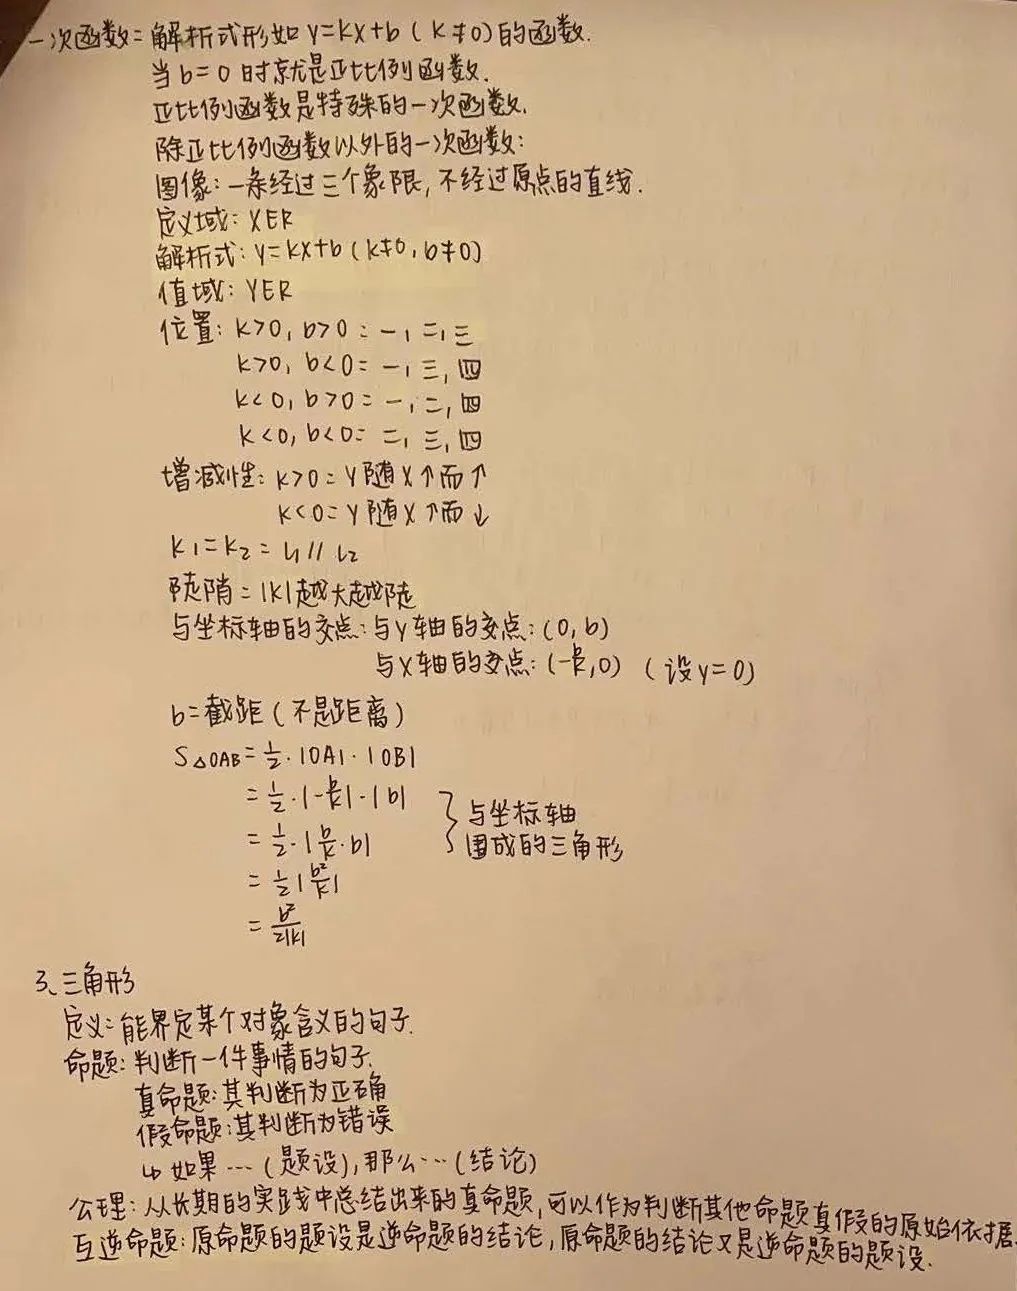 一次函数: 解析式形如 y=kx+b (k≠0)的函数.
当b=0时就是正比例函数.
正比例函数是特殊的一次函数.
除正比例函数以外的一次函数:
图像: 一条经过三个象限, 不经过原点的直线.
定义域: x∈R
解析式: y=kx+b (k≠0, b≠0)
值域: y∈R
位置: k>0, b>0: 一, 二, 三
k>0, b<0: 一, 三, 四
k<0, b>0: 一, 二, 四
k<0, b<0: 二, 三, 四
增减性: k>0: y随x↑而↑
k<0: y随x↑而↓
k₁=k₂: l₁∥l₂
陡陗: |k|越大越陡
与坐标轴的交点: 与y轴的交点: (0, b)
与x轴的交点: (-b/k, 0) (设y=0)
b: 截距 (不是距离)
S△OAB=1/2·|OA|·|OB|
=1/2·|-b/k|·|b|
=1/2·|b/k·b|
=1/2|b²/k|
=b²/2|k|
与坐标轴
围成的三角形
3、三角形
定义: 能界定某个对象含义的句子.
命题: 判断一件事情的句子.
真命题: 其判断为正确
假命题: 其判断为错误
↳ 如果…(题设), 那么…(结论)
公理: 从长期的实践中总结出来的真命题, 可以作为判断其他命题真假的原始依据.
互逆命题: 原命题的题设是逆命题的结论, 原命题的结论又是逆命题的题设.